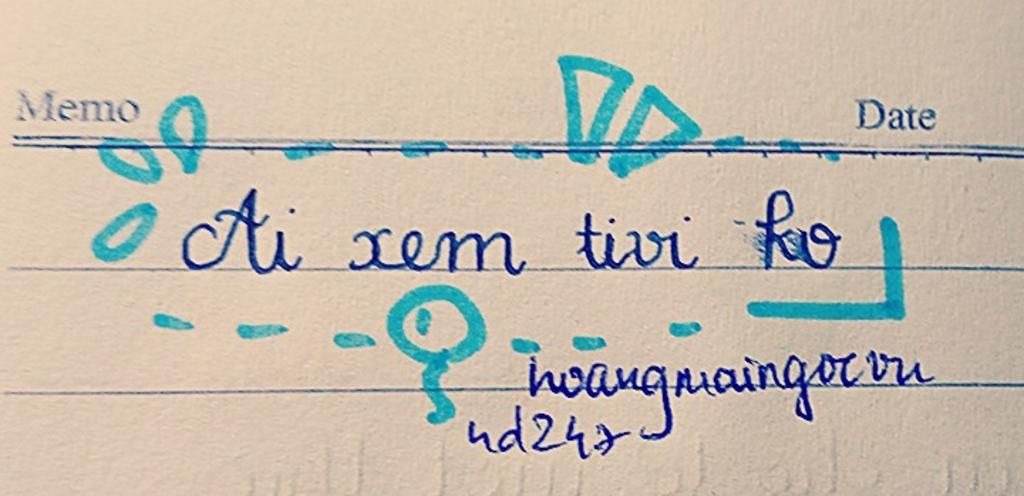 Memo Date
Ai xem tivi ko
hoangmaingocvu